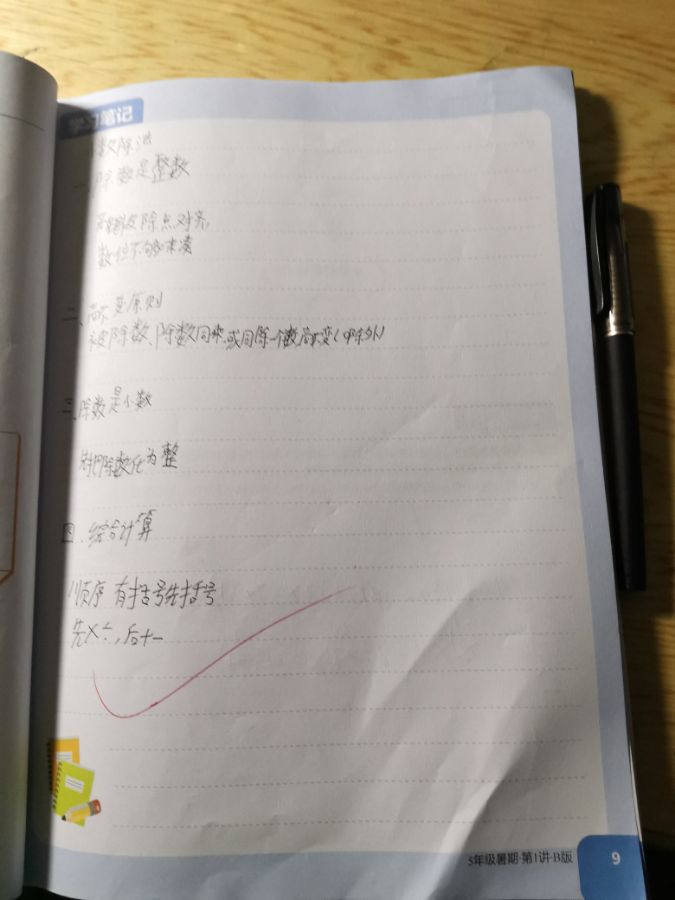 学习笔记
小数除法
一、除数是整数
商跟被除点对齐,
数位不够0来凑
二、商不变原则
被除数、除数同乘或同除一个数商不变(0除外)
三、除数是小数
先把除数化为整
四、综合计算
顺序 有括号先括号
先×÷,后+-
5年级暑期·第1讲·B版
9